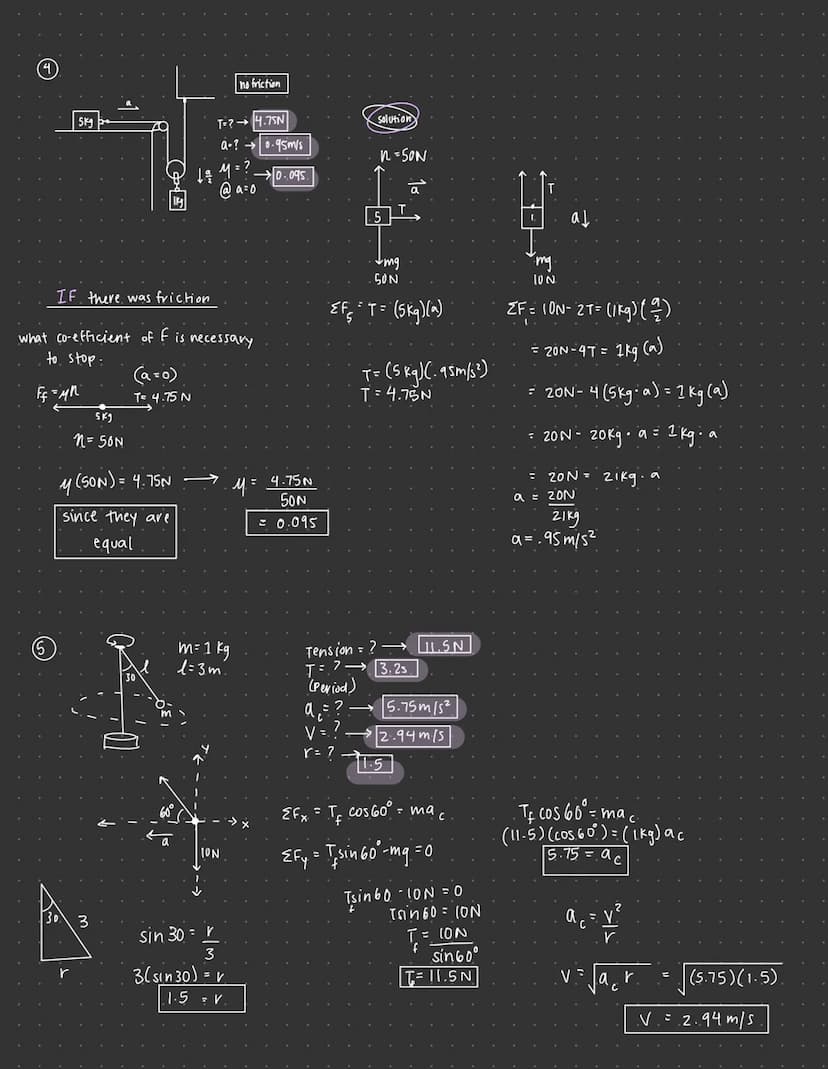 4
no friction
a
5kg
T=? → 4.75N
a=? → 0.95m/s
μ=? → 0.095
@ a=0
a/2
1kg
solution
n=50N
a
5
T
mg
50N
T
1
a↓
mg
10N
IF there was friction
what co-efficient of F is necessary
to stop.
(a=0)
F_f=μn
T=4.75N
5kg
n=50N
μ(50N)=4.75N → μ= 4.75N/50N
=0.095
since they are
equal
ΣF_5=T=(5kg)(a)
T=(5kg)(.95m/s²)
T=4.75N
ΣF_1=10N-2T=(1kg)(a/2)
=20N-4T=1kg(a)
=20N-4(5kg·a)=1kg(a)
=20N-20kg·a=1kg·a
=20N=21kg·a
a=20N/21kg
a=.95m/s²
5
30
l
m
m=1kg
l=3m
Tension=? → 11.5N
T=? → 3.2s
(period)
a_c=? → 5.75m/s²
V=? → 2.94m/s
r=? → 1.5
y
60°
x
a
10N
ΣFx=T_f cos60°=ma_c
ΣFy=T_f sin60°-mg=0
T_f sin60-10N=0
Tsin60=10N
T_f=10N/sin60°
T_f=11.5N
T_f cos60°=ma_c
(11.5)(cos60°)=(1kg)a_c
5.75=a_c
30
3
r
sin30=r/3
3(sin30)=r
1.5=r
a_c=v²/r
V=√a_c r =√(5.75)(1.5)
V=2.94m/s